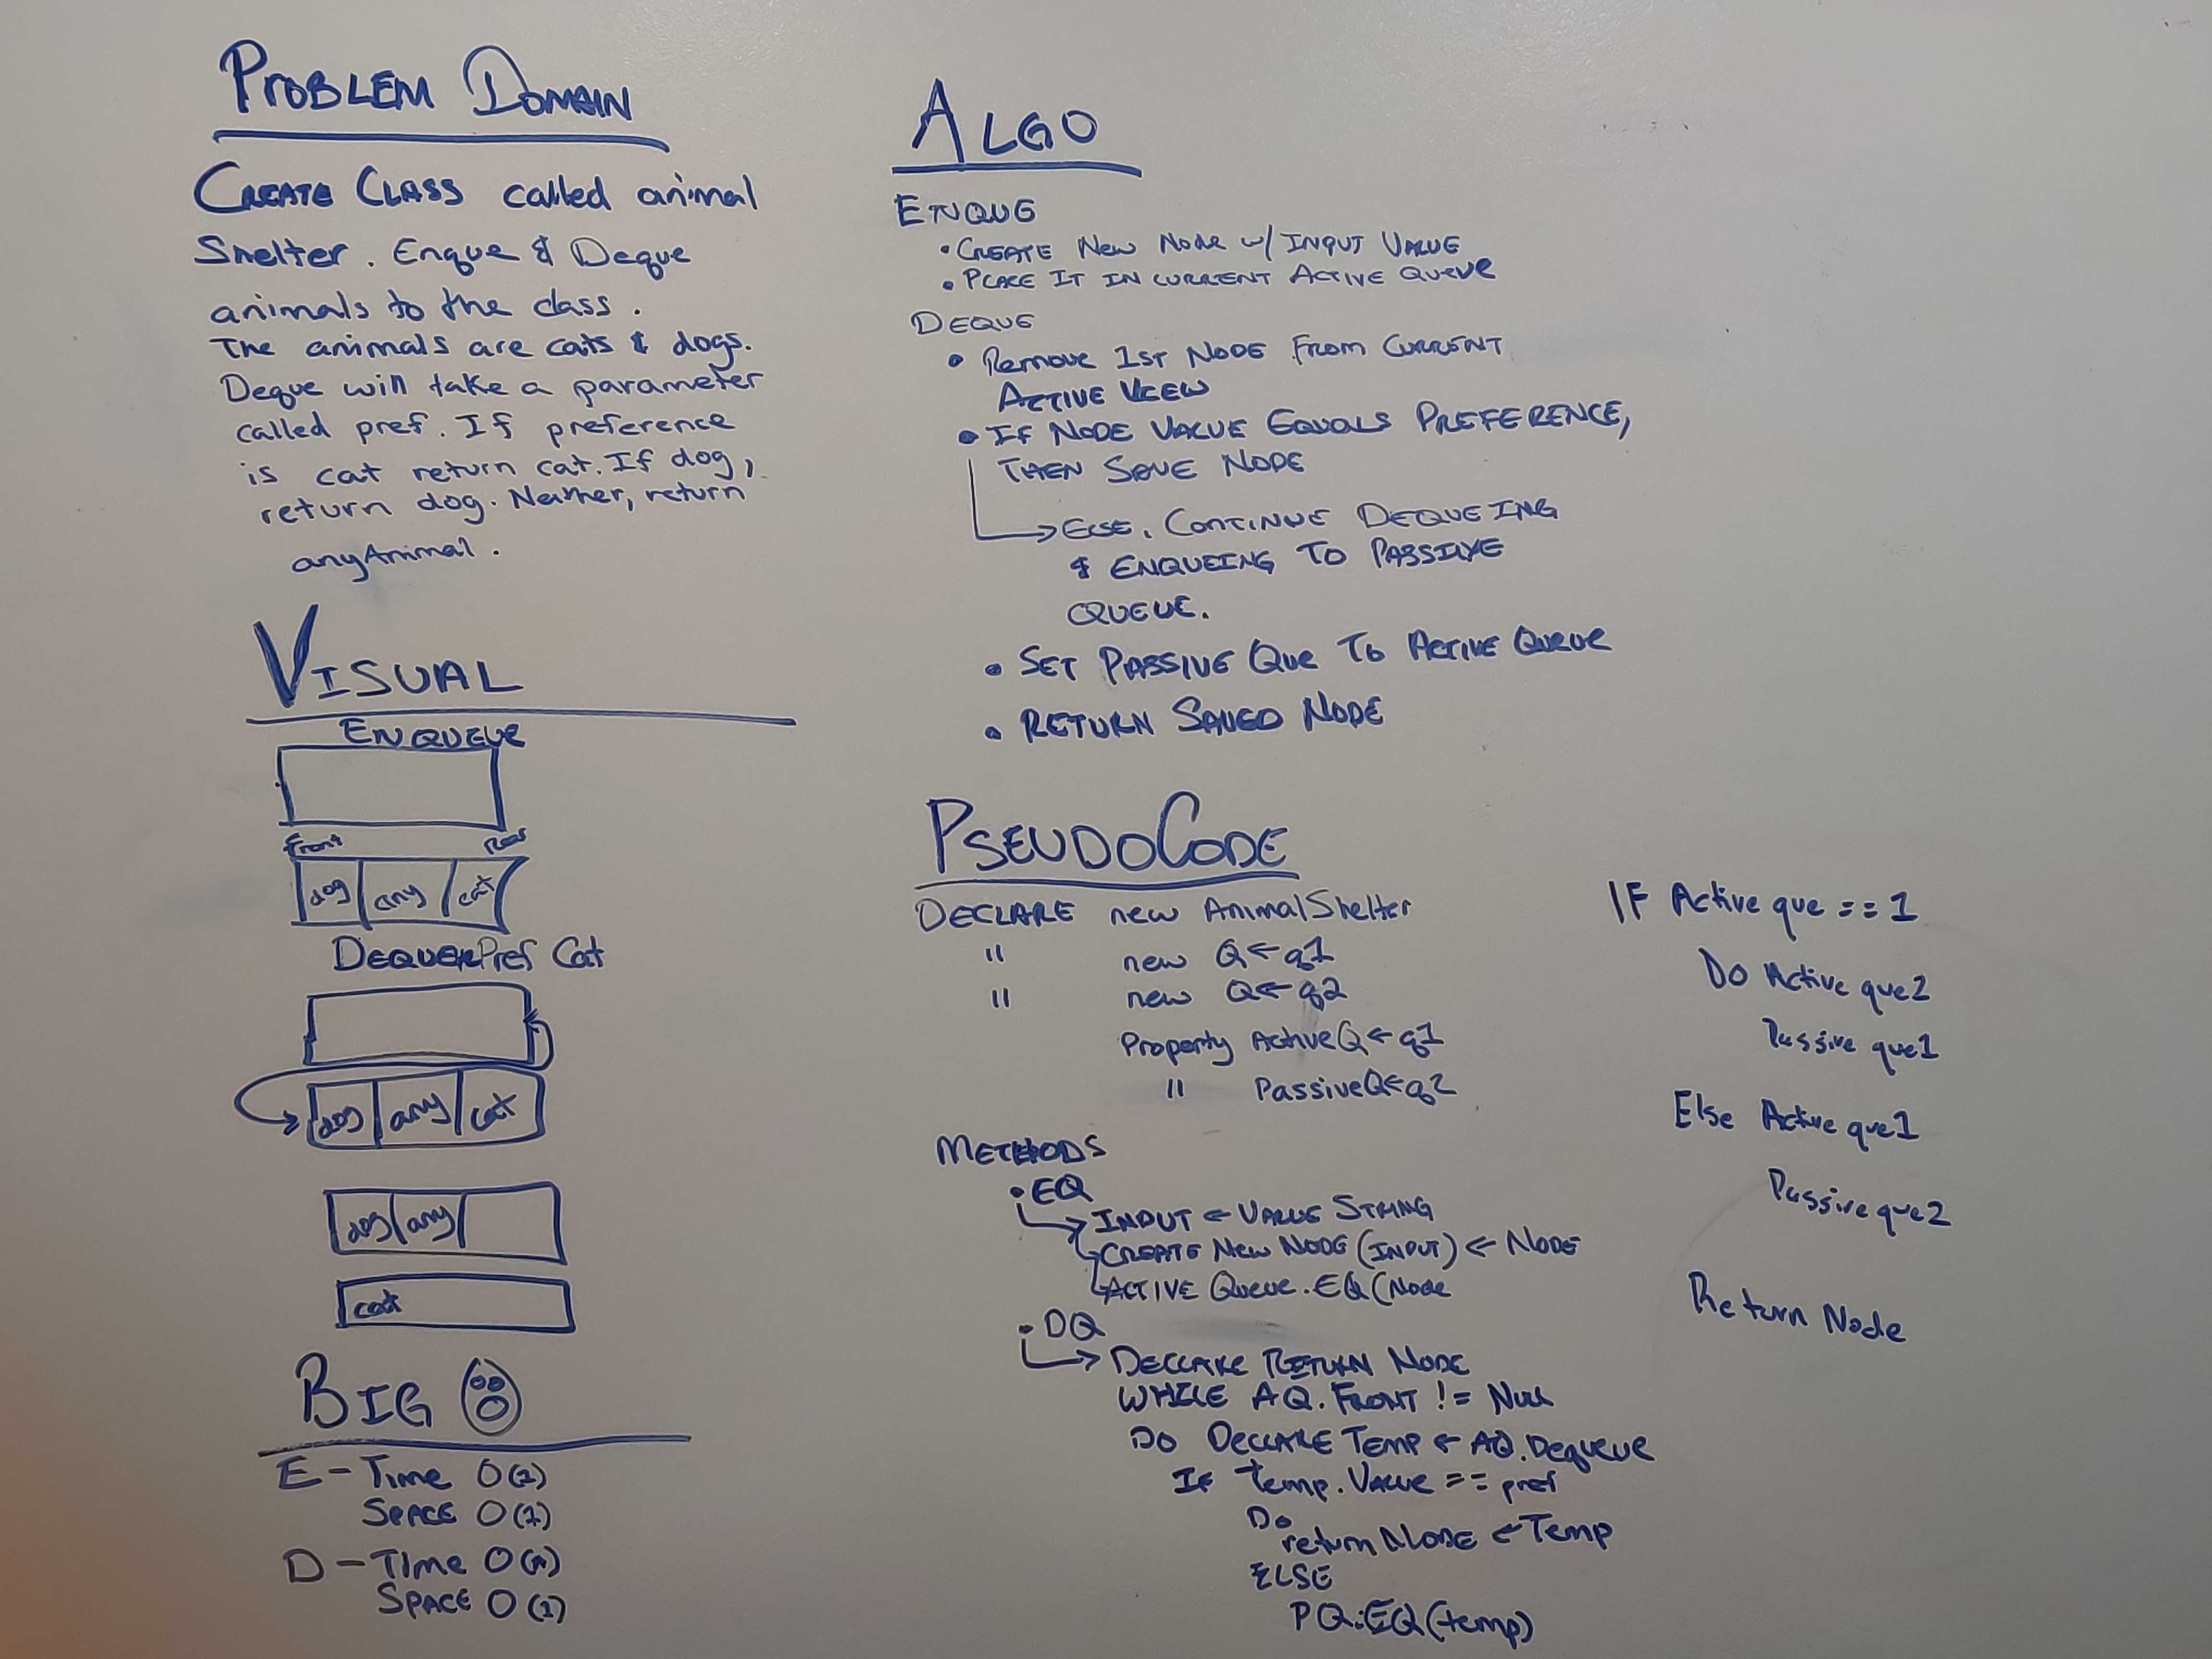 PROBLEM DOMAIN
CREATE CLASS called animal
Shelter. Enque & Deque
animals to the class.
The animals are cats & dogs.
Deque will take a parameter
called pref. If preference
is cat return cat. If dog,
return dog. Neither, return
anyAnimal.
VISUAL
ENQUEUE
Front Rear
dog any cat
DEQUEUE Pref Cat
dog any cat
dog any
cat
BIG
E - Time O(1)
SPACE O(1)
D - Time O(n)
SPACE O(1)
ALGO
ENQUE
• CREATE New Node w/ INPUT VALUE
• PLACE IT IN CURRENT ACTIVE QUEUE
DEQUE
• Remove 1ST NODE FROM CURRENT
ACTIVE VIEW
• IF NODE VALUE EQUALS PREFERENCE,
THEN SAVE NODE
ELSE, CONTINUE DEQUEING
& ENQUEING TO PASSIVE
QUEUE.
• SET PASSIVE QUE TO ACTIVE QUEUE
• RETURN SAVED NODE
PSEUDOCODE
DECLARE new AnimalShelter
" new Q ← q1
" new Q ← q2
Property ActiveQ ← q1
" PassiveQ ← q2
METHODS
• EQ
→ INPUT ← VALUE STRING
CREATE New NODE (INPUT) ← NODE
ACTIVE Queue.EQ(Node
• DQ
→ DECLARE RETURN NODE
WHILE AQ.FRONT != NULL
DO DECLARE TEMP ← AQ.DEQUEUE
IF temp.VALUE == pref
DO
return NODE ← TEMP
ELSE
PQ.EQ(temp)
IF Active que == 1
DO Active que2
Passive que1
Else Active que1
Passive que2
Return Node